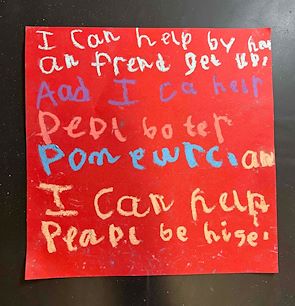 I Can help by ha
an frend get up.
And I ca help
PeoPl bo ter
Pom ewrc. an
I Can help
Peapl be hise.